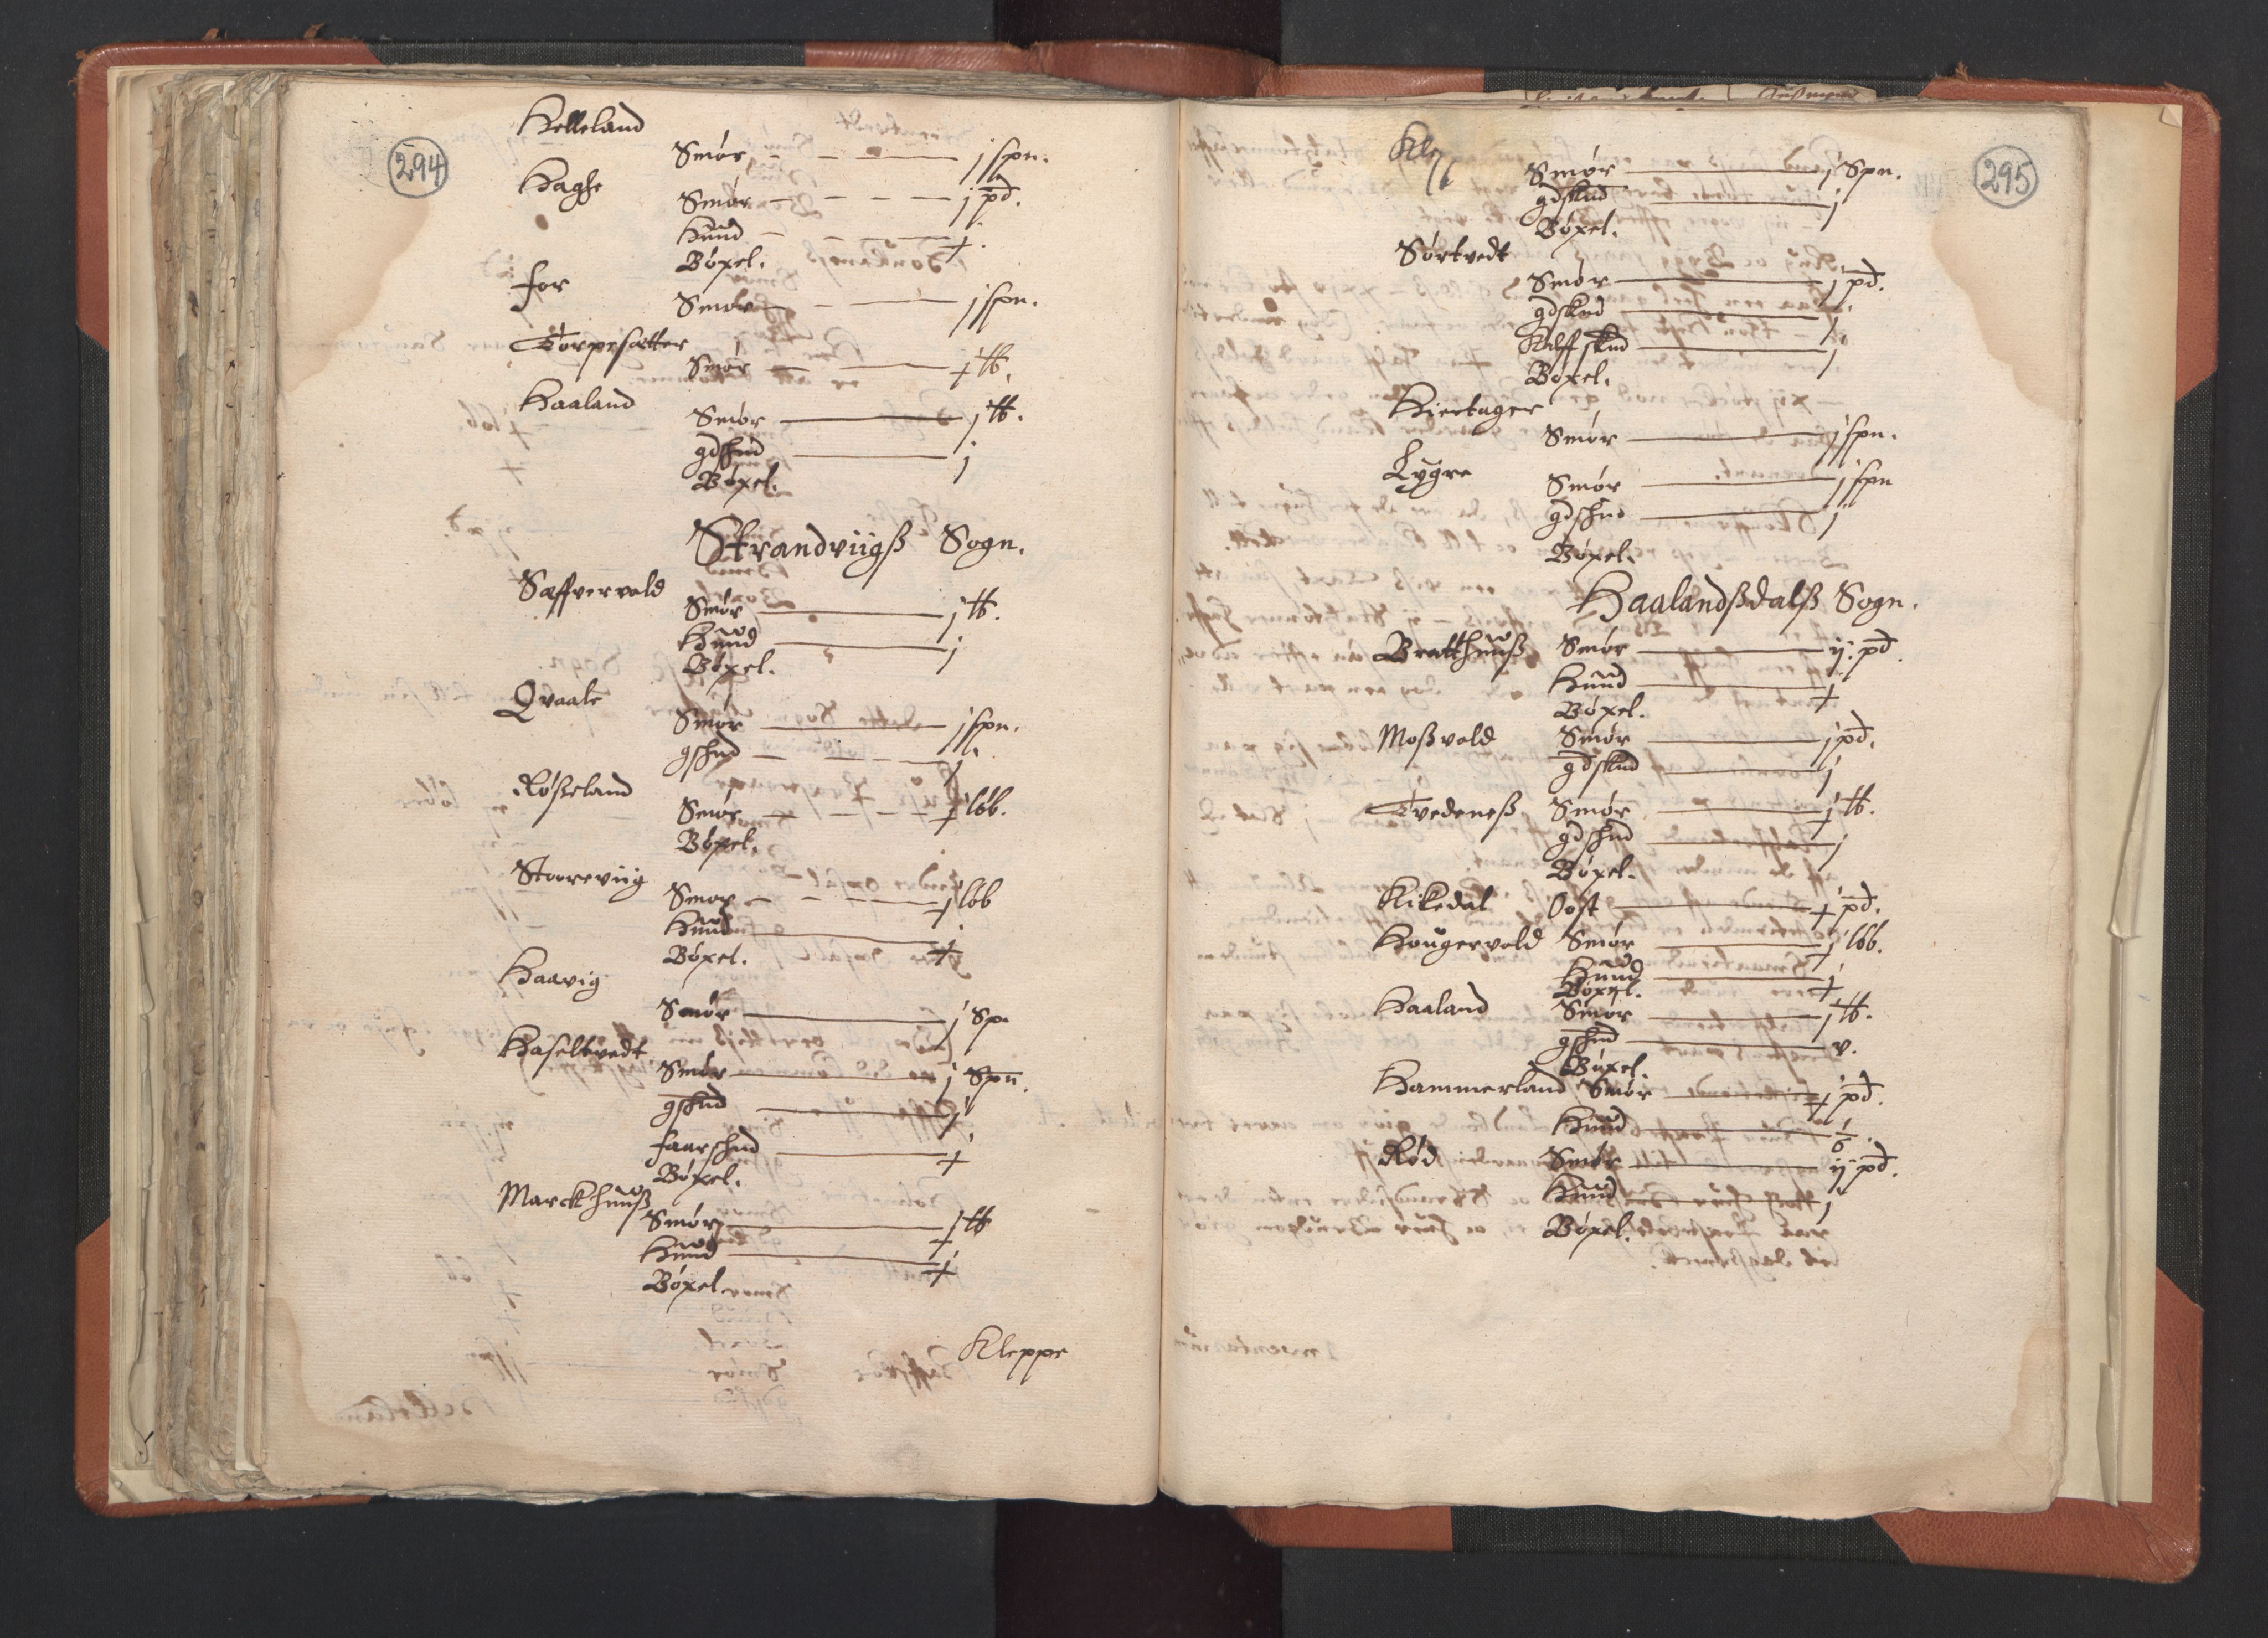 294
Helleland
Smør — j spn.
Haghe
Smør — j pd.
Huud — j
Bøxel.
For
Smør — j spn.
Torpesætter
Smør — j tb.
Haaland
Smør — j tb.
gdshud — j
Bøxel.
Strandviigß Sogn.
Sæffvervold
Smør — j tb.
Huud — j
Bøxel.
Qvaale
Smør — j spn.
gshud — j
Røßeland
Smør — j løb.
Bøxel.
Stooreviig
Smør — j løb
Huud — j
Bøxel.
Haavig
Smør — j Sp.
Haseltvedt
Smør — j Spn.
gskud — j
faarschud — j
Bøxel.
Marckhuuß
Smør — j tb
Huud — j
Bøxel.
Kleppe
295
Klep
Smør — j Spn.
gdskud — j
Bøxel.
Sørtvedt
Smør — j pd.
gdskud — j
Kalffskud — j
Bøxel.
Hiertager
Smør — j spn.
Lygre
Smør — j spn
gdschud — j
Bøxel.
Haalandßdalß Sogn.
Bratthuuß Smør — ij pd.
Huud — j
Bøxel.
Moßvold Smør — j pd.
gdskud — j
Tvedeneß Smør — j tb.
gdschud — j
Bøxel.
Kikedal Oost — j pd.
Hougervold Smør — j løb.
Huud — j
Bøxel.
Haaland Smør — j tb.
gshud — v.
Bøxel.
Hammerland Smør — j pd.
Huud — 1/6.
Rød Smør — ij pd.
Huud — j
Bøxel.